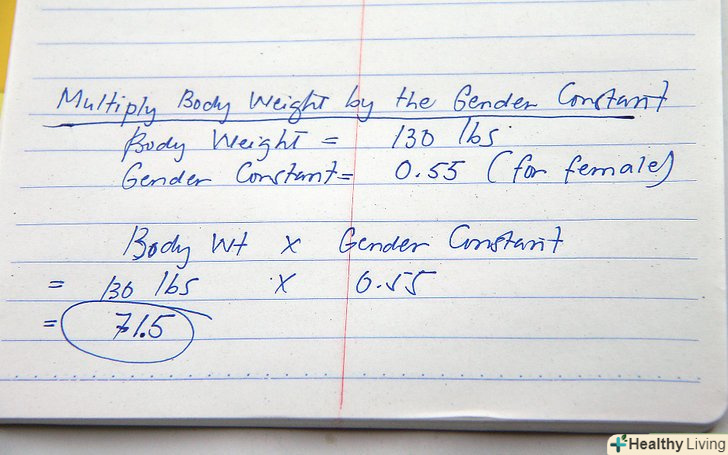 Multiply Body Weight by the Gender Constant
Body Weight = 130 lbs
Gender Constant = 0.55 (for female)
Body Wt x Gender Constant
= 130 lbs x 0.55
= 71.5
Healthy Living